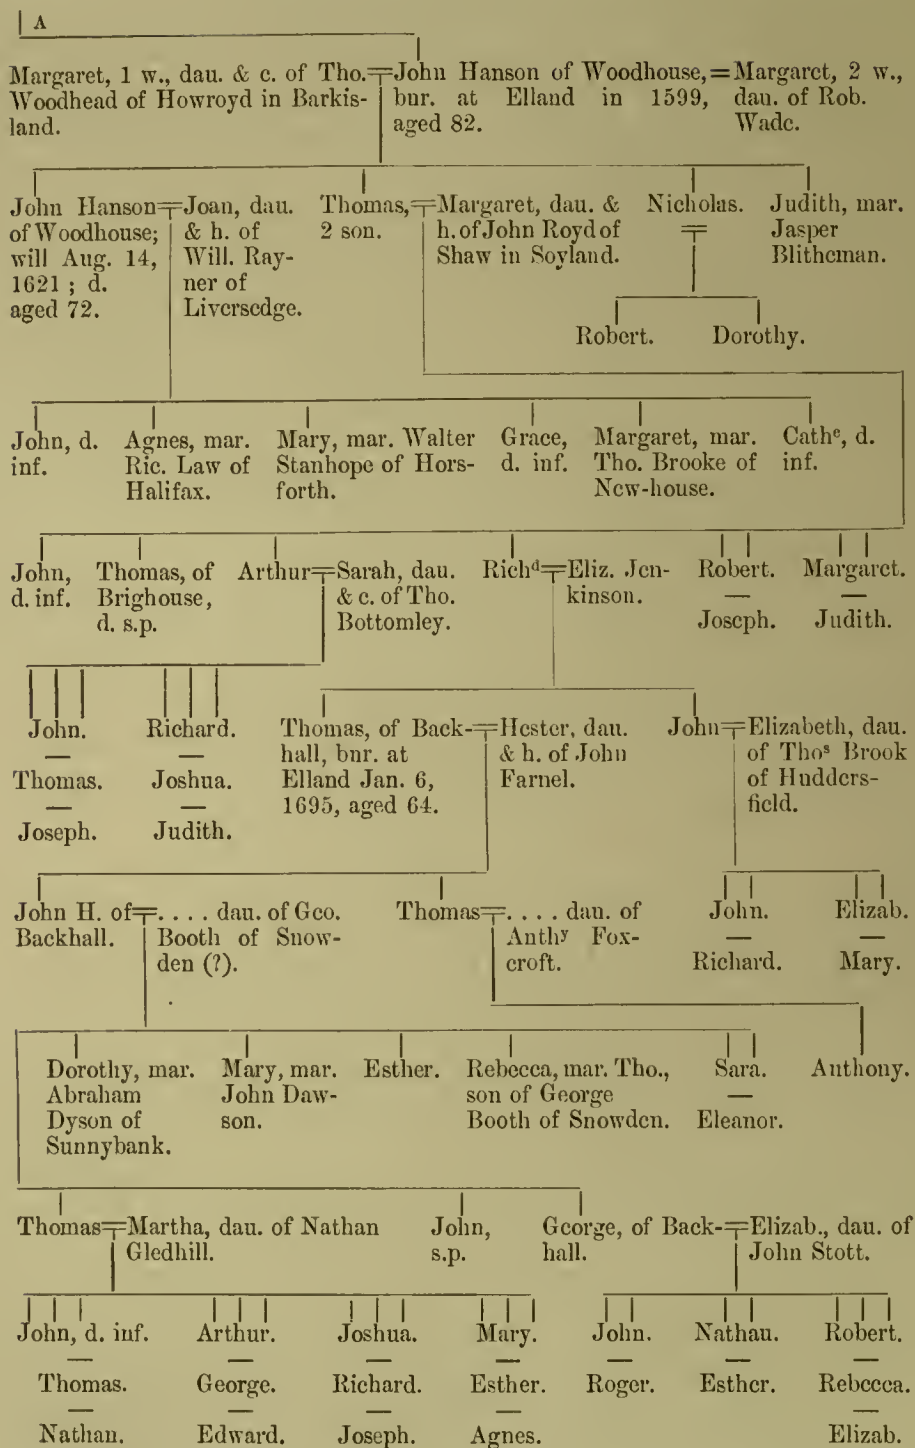 A
Margaret, 1 w., dau. & c. of Tho.
Woodhead of Howroyd in Barkis-
land.
John Hanson of Woodhouse,
bur. at Elland in 1599,
aged 82.
Margaret, 2 w.,
dau. of Rob.
Wade.
John Hanson
of Woodhouse;
will Aug. 14,
1621 ; d.
aged 72.
Joan, dau.
& h. of
Will. Ray-
ner of
Liversedge.
Thomas,
2 son.
Margaret, dau. &
h. of John Royd of
Shaw in Soyland.
Nicholas.
Judith, mar.
Jasper
Blitheman.
Robert.
Dorothy.
John, d.
inf.
Agnes, mar.
Ric. Law of
Halifax.
Mary, mar. Walter
Stanhope of Hors-
forth.
Grace,
d. inf.
Margaret, mar.
Tho. Brooke of
New-house.
Cathe, d.
inf.
John,
d. inf.
Thomas, of
Brighouse,
d. s.p.
Arthur
Sarah, dau.
& c. of Tho.
Bottomley.
Richd
Eliz. Jen-
kinson.
Robert.
—
Joseph.
Margaret.
—
Judith.
John.
—
Thomas.
—
Joseph.
Richard.
—
Joshua.
—
Judith.
Thomas, of Back-
hall, bur. at
Elland Jan. 6,
1695, aged 64.
Hester, dau.
& h. of John
Farnel.
John
Elizabeth, dau.
of Thos Brook
of Hudders-
field.
John H. of
Backhall.
. . . . dau. of Geo.
Booth of Snow-
den (?).
Thomas
. . . . dau. of
Anthy Fox-
croft.
John.
—
Richard.
Elizab.
—
Mary.
Dorothy, mar.
Abraham
Dyson of
Sunnybank.
Mary, mar.
John Daw-
son.
Esther.
Rebecca, mar. Tho.,
son of George
Booth of Snowden.
Sara.
—
Eleanor.
Anthony.
Thomas
Martha, dau. of Nathan
Gledhill.
John,
s.p.
George, of Back-
hall.
Elizab., dau. of
John Stott.
John, d. inf.
—
Thomas.
—
Nathan.
Arthur.
—
George.
—
Edward.
Joshua.
—
Richard.
—
Joseph.
Mary.
—
Esther.
—
Agnes.
John.
—
Roger.
Nathan.
—
Esther.
Robert.
—
Rebecca.
—
Elizab.